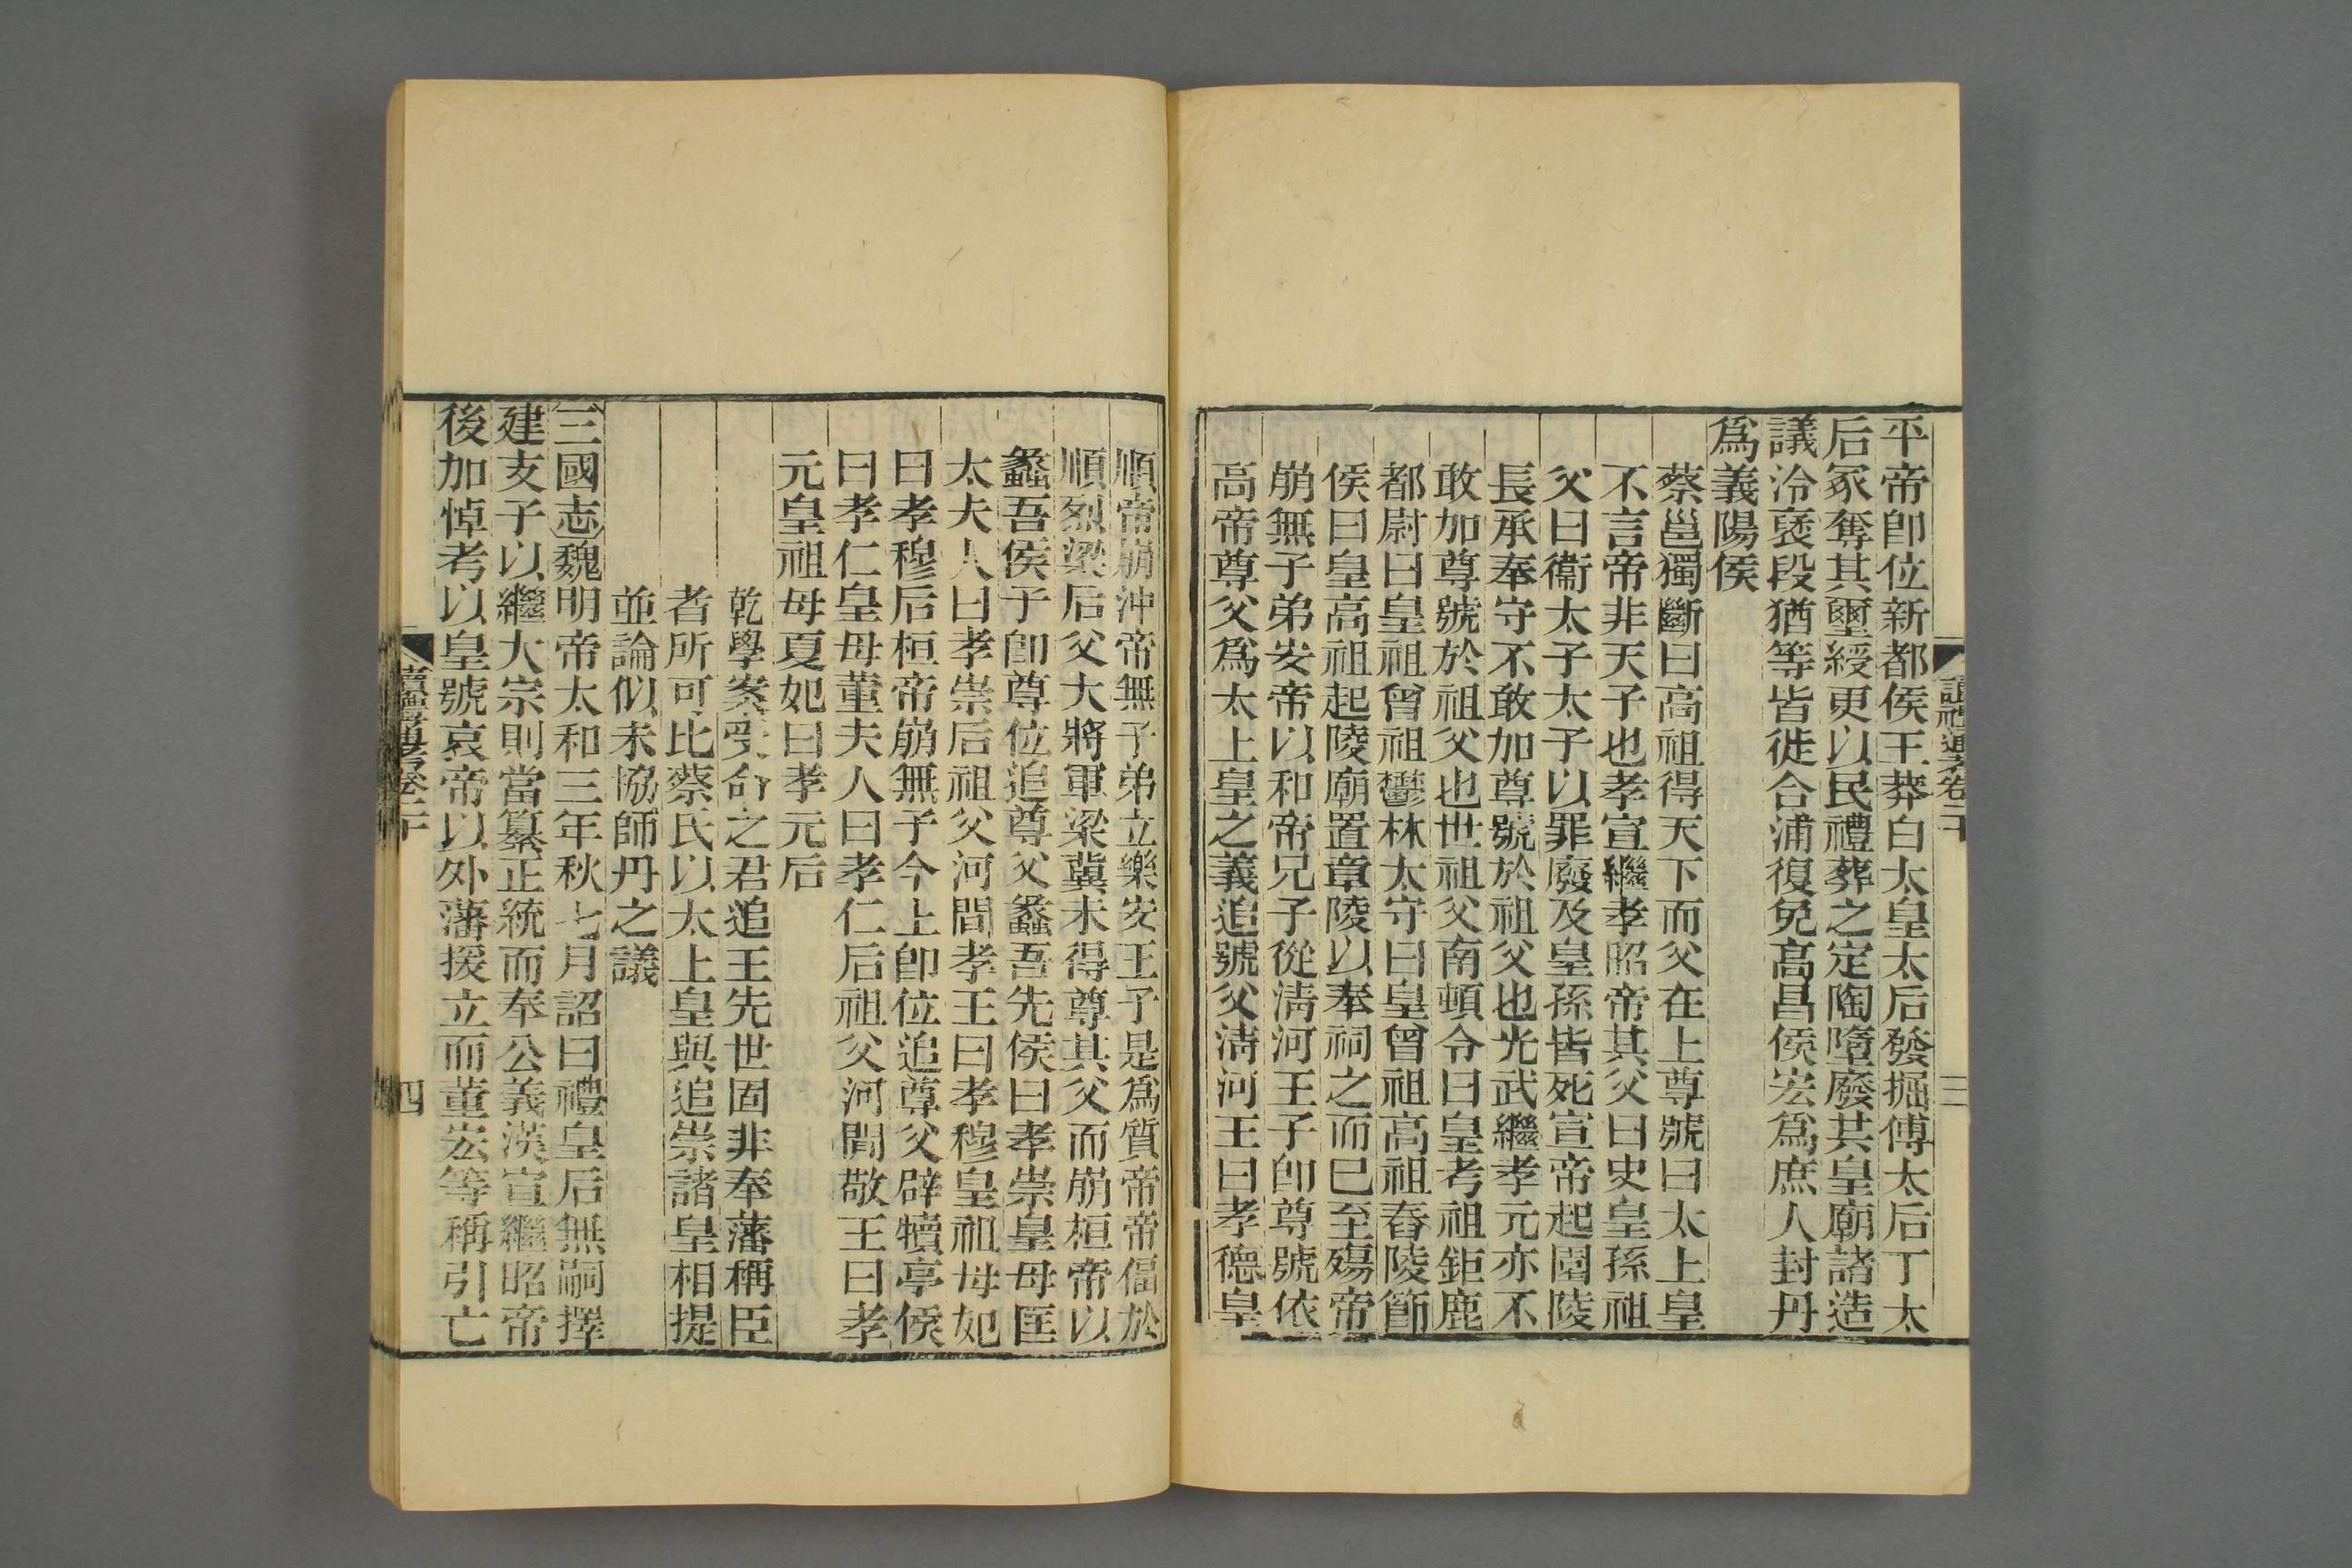 平帝卽位新都侯王莽白太皇太后發掘傅太后丁太
后冢奪其璽綬更以民禮葬之定陶隳廢共皇廟諸造
議泠褒段猶等皆徙合浦復免高昌侯宏爲庶人封丹
爲義陽侯
蔡邕獨斷曰高祖得天下而父在上尊號曰太上皇
不言帝非天子也孝宣繼孝昭帝其父曰史皇孫祖
父曰衞太子太子以罪廢及皇孫皆死宣帝起園陵
長承奉守不敢加尊號於祖父也光武繼孝元亦不
敢加尊號於祖父也世祖父南頓令曰皇考祖鉅鹿
都尉曰皇祖曾祖鬱林太守曰皇曾祖高祖舂陵節
侯曰皇高祖起陵廟置章陵以奉祠之而巳至殤帝
崩無子弟安帝以和帝兄子從淸河王子卽尊號依
高帝尊父爲太上皇之義追號父淸河王曰孝德皇
順帝崩沖帝無子弟立樂安王子是爲質帝帝偪於
順烈梁后父大將軍梁冀未得尊其父而崩桓帝以
蠡吾侯子卽尊位追尊父蠡吾先侯曰孝崇皇母匡
太夫人曰孝崇后祖父河間孝王曰孝穆皇祖母妃
曰孝穆后桓帝崩無子今上卽位追尊父辟犢亭侯
曰孝仁皇母董夫人曰孝仁后祖父河間敬王曰孝
元皇祖母夏妃曰孝元后
乾學案受命之君追王先世固非奉藩稱臣
者所可比蔡氏以太上皇與追崇諸皇相提
並論似未協師丹之議
三國志魏明帝太和三年秋七月詔曰禮皇后無嗣擇
建支子以繼大宗則當纂正統而奉公義漢宣繼昭帝
後加悼考以皇號哀帝以外藩援立而董宏等稱引亡
讀禮通考卷二十
三
讀禮通考卷二十
四